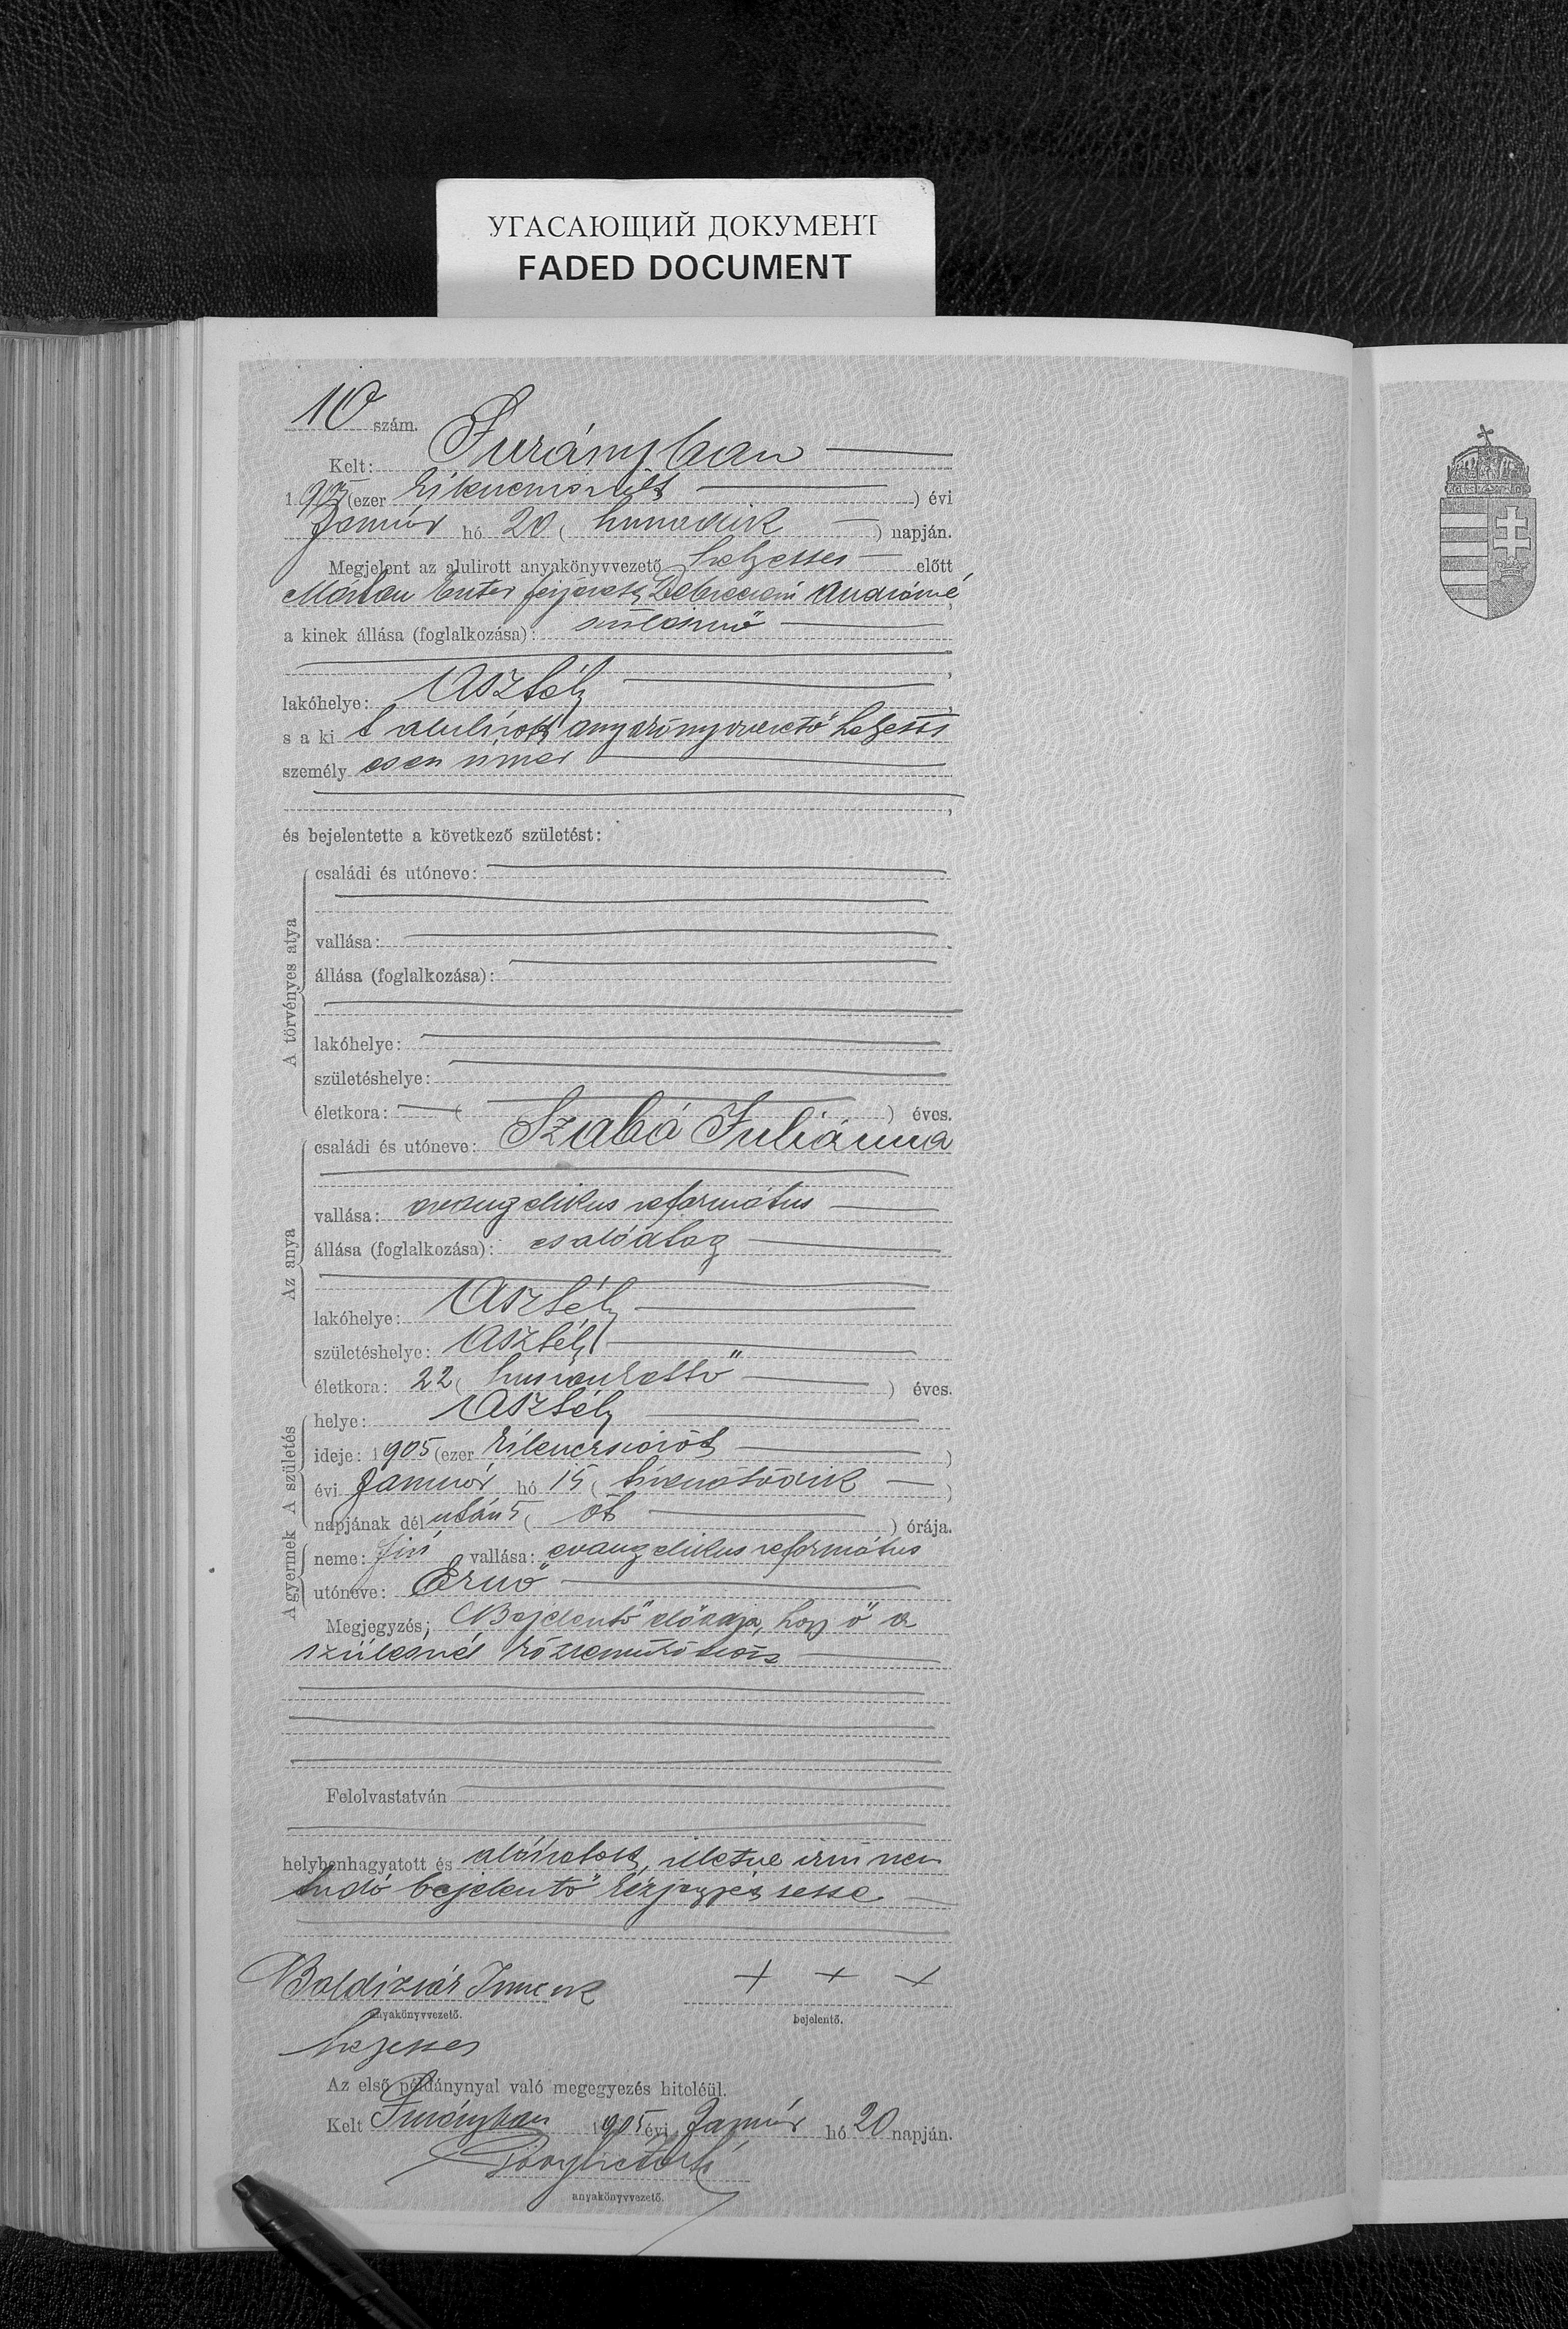 УГАСАЮЩИЙ ДОКУМЕНТ
FADED DOCUMENT
10 szám.
Kelt: Surányban
1905 (ezer kilencszázöt ) évi
Január hó 20 ( huszadik ) napján.
Megjelent az alulirott anyakönyvvezető helyettes előtt
Márton Eszter férjezett Debreceni Andrásné
a kinek állása (foglalkozása): szülésznő
lakóhelye: Asztély
s a ki t alulírott anyakönyvvezető helyettes
személyesen ismer
és bejelentette a következő születést:
A törvényes atya
családi és utóneve:
vallása:
állása (foglalkozása):
lakóhelye:
születéshelye:
életkora: ( ) éves.
Az anya
családi és utóneve: Szabó Juliánna
vallása: evangelikus református
állása (foglalkozása): családtag
lakóhelye: Asztély
születéshelye: Asztély
életkora: 22 ( huszonkettő ) éves.
A születés
helye: Asztély
ideje: 1905 (ezer kilencszázöt )
évi Január hó 15 ( tizenötödik )
napjának dél után 5 ( öt ) órája.
A gyermek
neme: fiú vallása: evangelikus református
utóneve: Ernő
Megjegyzés: Bejelentő előadja, hogy ő a
szülésnél közreműködött
Felolvastatván
helybenhagyatott és aláíratott, illetve írni nem
tudó bejelentő kézjegyével
Baldizsár Imre
anyakönyvvezető.
helyettes
+ + +
bejelentő.
Az első példánynyal való megegyezés hiteléül.
Kelt Surányban 1905 évi Január hó 20 napján.
anyakönyvvezető.